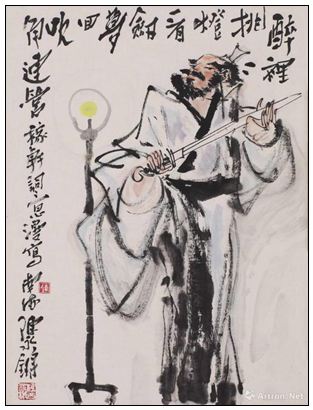 醉裡
挑燈看劍夢回吹
角連營稼軒詞意漫寫南海陳永鏘
Artron.Net